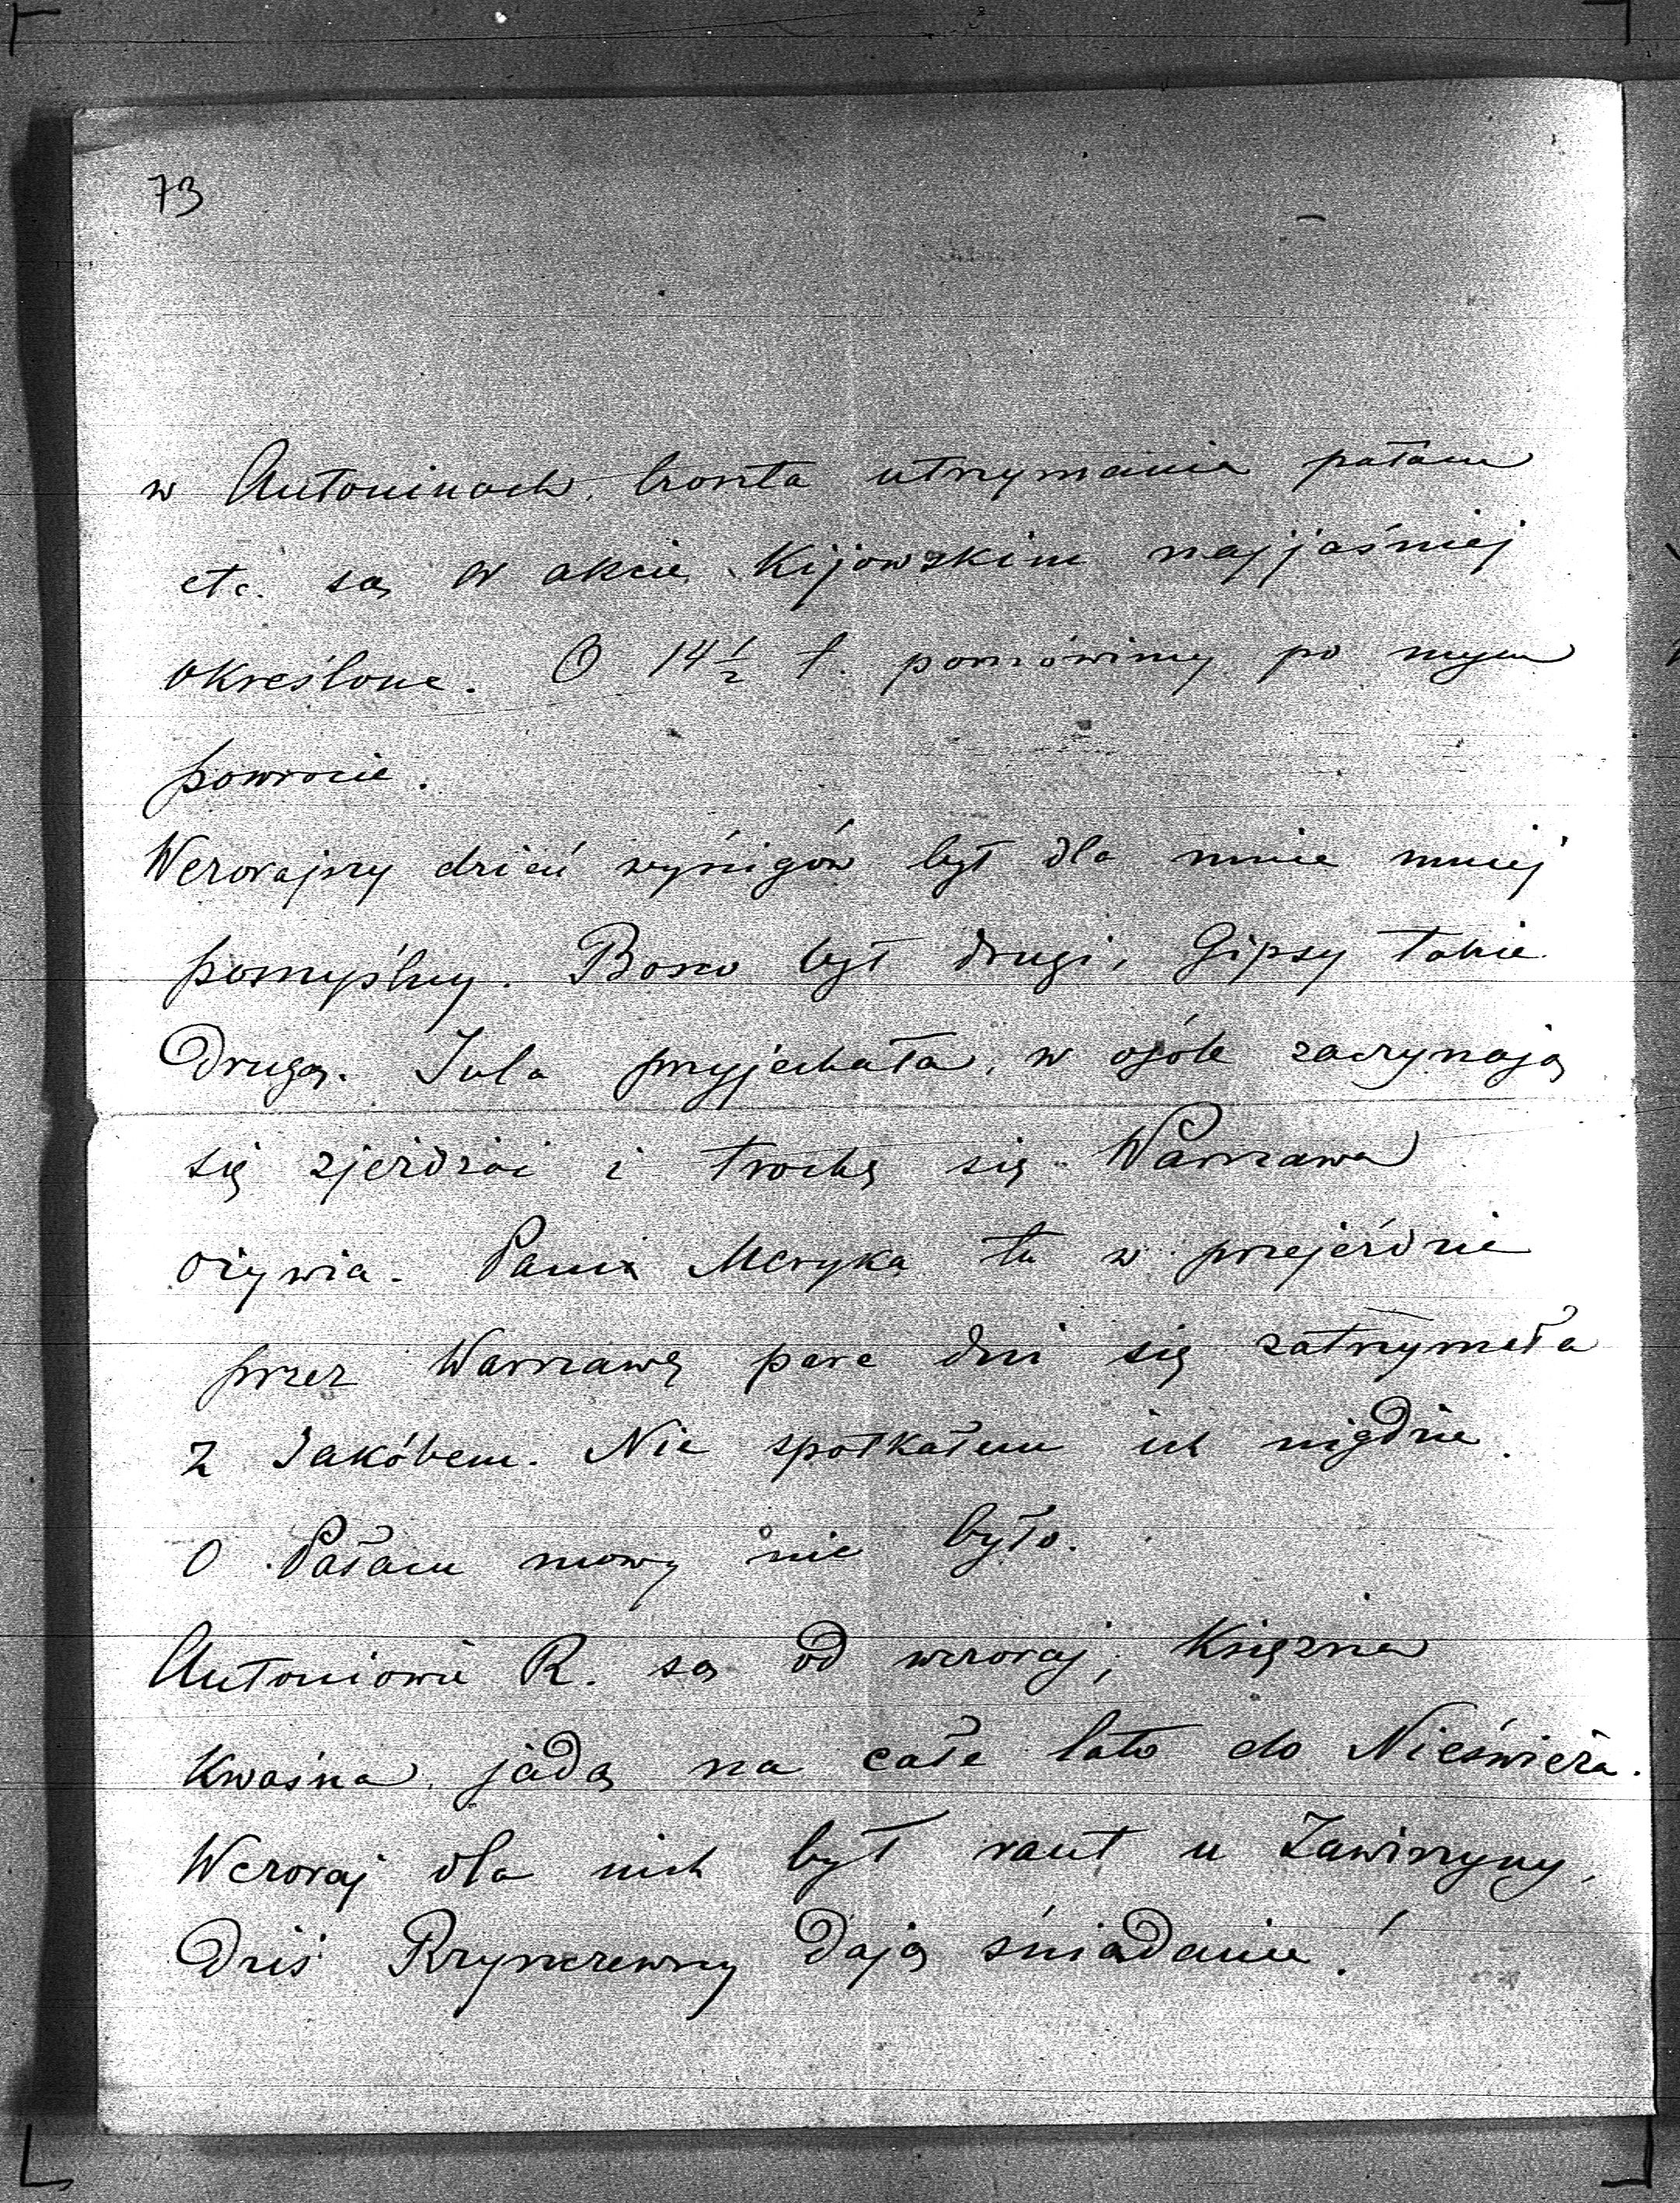 73
w Antoninach, koszta utrzymania pałacu
etc. są w akcie Kijowskim najjaśniej
określone. O 14½ t. pomówimy po mym
powrocie.
Wczorajszy dzień wyścigów był dla mnie mniej
pomyślny. Bosco był drugi, Gipsy także
drugą. Jula przyjechała, w ogóle zaczynają
się zjeżdżać i trochę się Warszawa
ożywia. Pania Meryka tu w przejeździe
przez Warszawę parę dni się zatrzymała
z Jakóbem. Nie spotkałem ich nigdzie.
O Pałacu mowy nie było.
Antoniowie R. są od wczoraj, Księżna
kwaśna, jadą na całe lato do Nieświeża.
Wczoraj dla nich był raut u Zawiszyny,
Dziś Rzyszczewscy dają śniadanie!